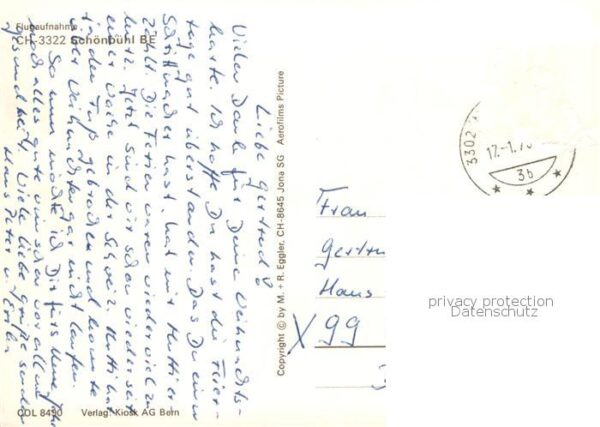 Flugaufnahme
CH-3322 Schönbühl BE
Liebe Gertrud
Vielen Dank für Deine Weihnachts-
karte. Ich hoffe Du hast die Feier-
tage gut überstanden. Das Du einen
hast, hat mir Mutti er-
zählt. Die Ferien waren wieder viel zu
kurz. Jetzt sind wir schon wieder seit
einer Woche in der Schweiz. Mutti hat
den Fuß gebrochen und konnte
über Weihnachten gar nicht laufen.
So nun möchte ich Dir fürs Neue Jahr
noch alles gute wünschen vor allem
gesundheit. Viele liebe Grüße senden
Hans Peter u.
COL 8490 Verlag: Kiosk AG Bern
Copyright © by M. + R. Eggler, CH-8645 Jona SG Aerofilms Picture
3302
12.-1.70
3b
Frau
Gertru
Haus
X 99
privacy protection
Datenschutz